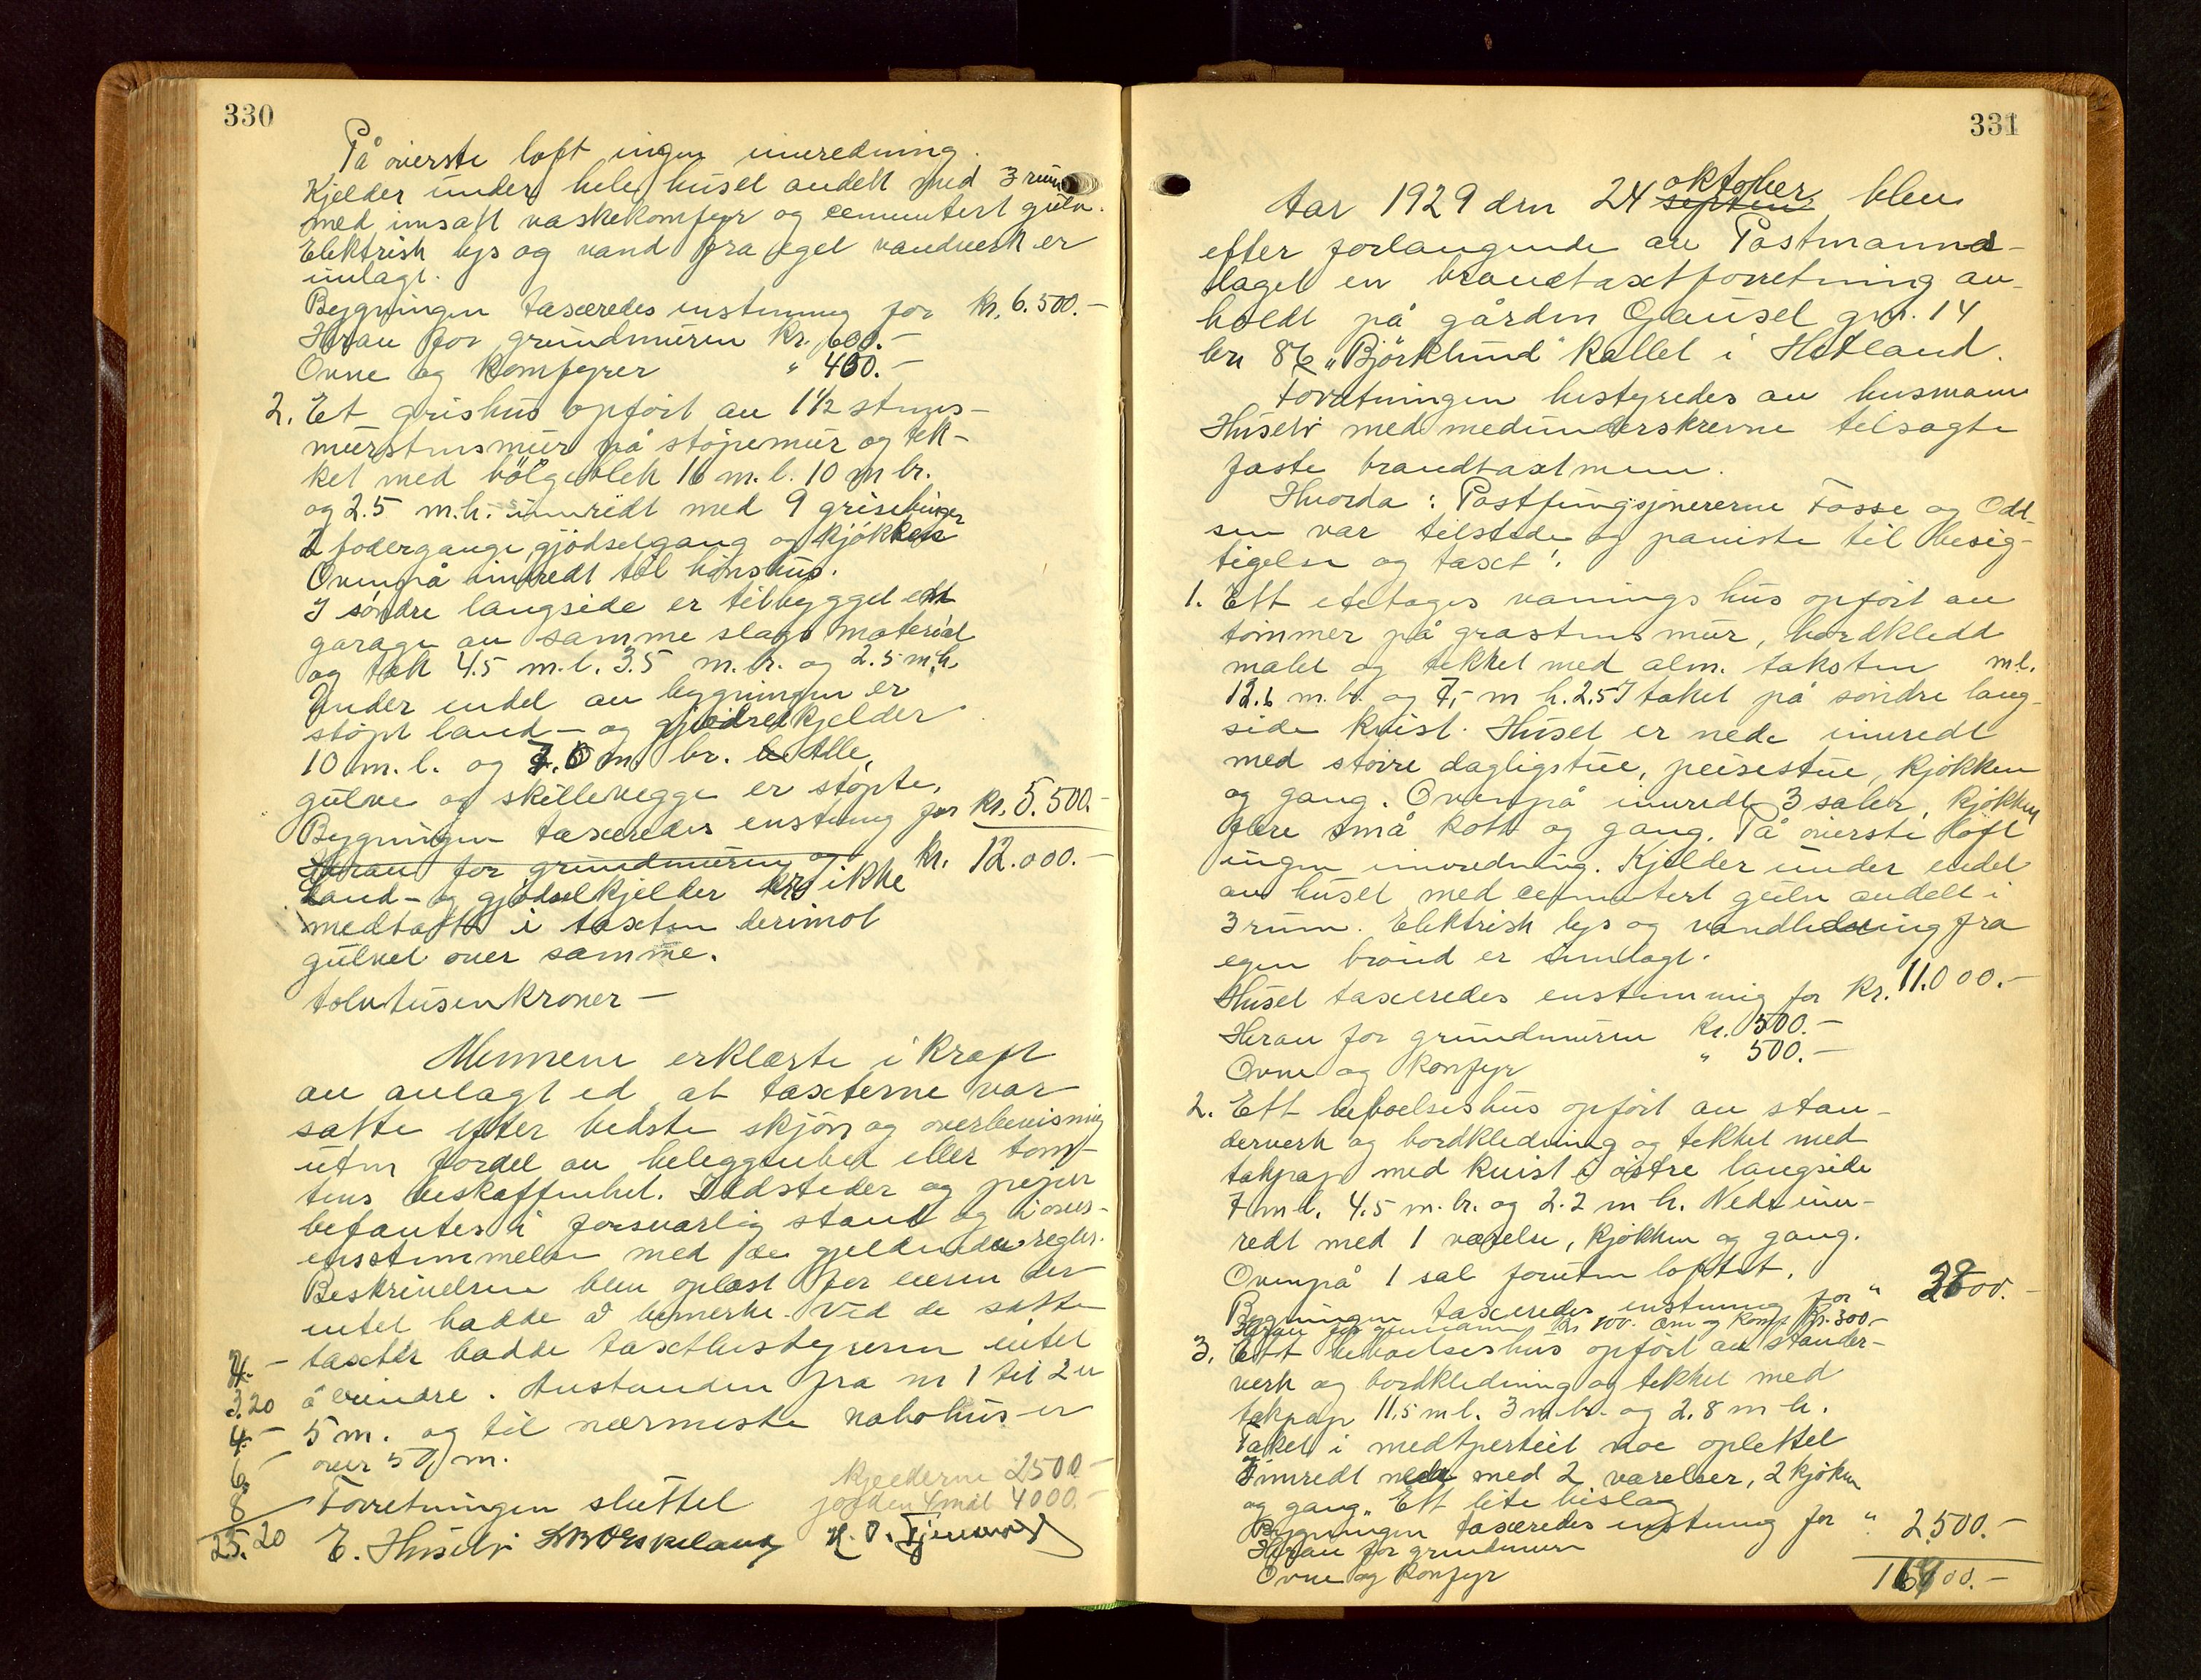 330
På øverste loft ingen innredning.
Kjelder under hele huset andelt med 3 rum
med innsatt vaskekomfyr og cementert gulv.
Elektrisk lys og vand fra eget vandverk er
innlagt.
Bygningen taxeredes enstemmig for kr. 6.500.-
Herav for grundmuren kr. 600.-
Ovne og komfyrer " 400.-
2. Et grishus opført av 1½ stens-
murstensmur på støpemur og tek-
ket med bölgeblek 16 m.l. 10 m br.
og 2.5 m.h. innredt med 9 grisebinger
2 fodergange, gjødselgang og kjøkken
Ovenpå innredt til hønshus.
I søndre langside er tilbygget ett
garage av samme slags material
og tak 4.5 m.l. 3.5 m.br. og 2.5 m.h.
Under endel av bygningen er
støpt land- og gjødselkjelder
10 m.l. og 7.0 m. br. Alle
gulve og skillevegge er støpte.
Bygningen taxeredes enstemmig for kr. 5.500.-
Herav for grundmuren og kr. 12.000.-
Land- og gjødselkjelder er ikke
medtatt i taxten derimot
gulvet over samme.
tolvtusenkroner -
Mennene erklærte i kraft
av avlagt ed at taxterne var
satte efter bedste skjøn og overbevisning
uten fordel av beleggenhet eller tom-
tens beskaffenhet. Ildsteder og piper
befantes i forsvarlig stand og i over-
ensstemmelse med de gjeldende regler.
Beskrivelsen blev oplæst for eieren der
intet hadde å bemerke. Ved de satte
4.- taxter hadde taxtbestyreren intet
3.20 å erindre. Avstanden fra nr 1 til 2 er
4.- 5 m. og til nærmeste nabohus er
6.- over 50 m.
kjelderne 2500.-
8 Forretningen sluttet jorden 4 mål 4000.-
25.20 E. Huselv
331
Aar 1929 den 24 septem oktober blev
efter forlangende av Postmanns-
laget en brandtaxtforretning av-
holdt på gården Gausel gnr. 14
bn 86 "Björklund" kallet i Hetland.
Forretningen bestyredes av husmann
Huselv med medunderskrevne tilsagte
faste brandtaxtmenn.
Hvorda: Postfungsjonererne Fosse og Odl-
sen var tilstede og paviste til besig-
tigelse og taxt:
1. Ett etetages vaningshus opført av
tømmer på gråstensmur, bordkledd
malet og tekket med alm. taksten m l.
12.6 m. br. og 7,- m h. 2.5 I taket på søndre lang-
side kvist. Huset er nede innredt
med større dagligstue, peisestue, kjøkken
og gang. Ovenpå innredt 3 saler, kjøkken
flere små kott og gang. På øverste loft
ingen innredning. Kjelder under endel
av huset med cementert gulv andelt i
3 rum. Elektrisk lys og vandledning fra
egen brønd er innlagt.
Huset taxeredes enstemmig for kr. 11.000.-
Herav for grundmuren kr. 500.-
Ovne og konfyr " 500.-
2. Ett beboelseshus opført av stan-
derverk og bordkledning og tekket med
takpap med kvist i østre langside
7 m l. 4.5 m. br. og 2.2 m h. Nede inn-
redt med 1 værelse, kjøkken og gang.
Ovenpå 1 sal foruten loftet.
Bygningen taxeredes enstemmig for " 2800.-
Herav for grunnmuren kr 100. Ovn og Konf. kr. 300.-
3. Ett beboelseshus opført av stander-
verk og bordkledning og tekket med
takpap 11,5 m l. 3 m br. og 2.8 m h.
Taket i midtpartiet noe oplettet
Innredt nede med 2 værelser, 2 kjøkken
og gang. Ett lite bislag
Bygningen taxeredes enstemmig for " 2.500.-
Herav for grundmuren
Ovne og konfyr